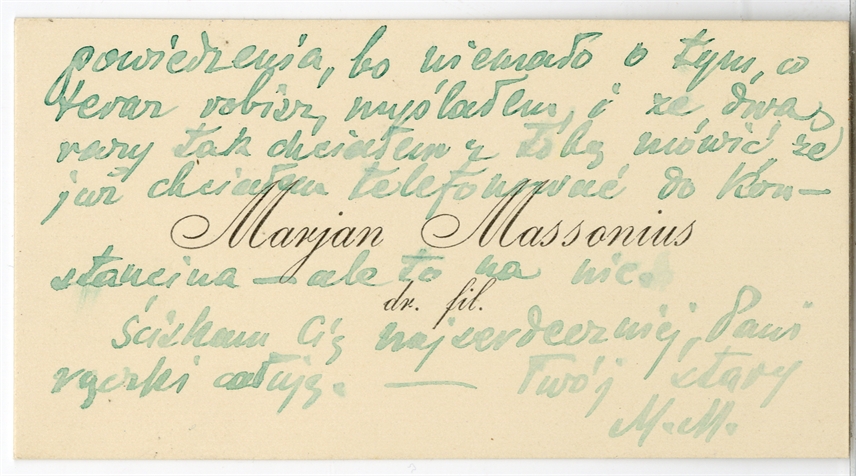 powiedzenia, bo niemało o tym, co
teraz robisz, myślałem, i że dwa
razy tak chciałem z tobą mówić, że
już chciałem telefonować do Kon—
Marjan Massonius
stancina — ale to na nic.
dr. fil.
Ściskam Cię najserdeczniej, Pani
rączki całuję. — Twój stary
M.M.